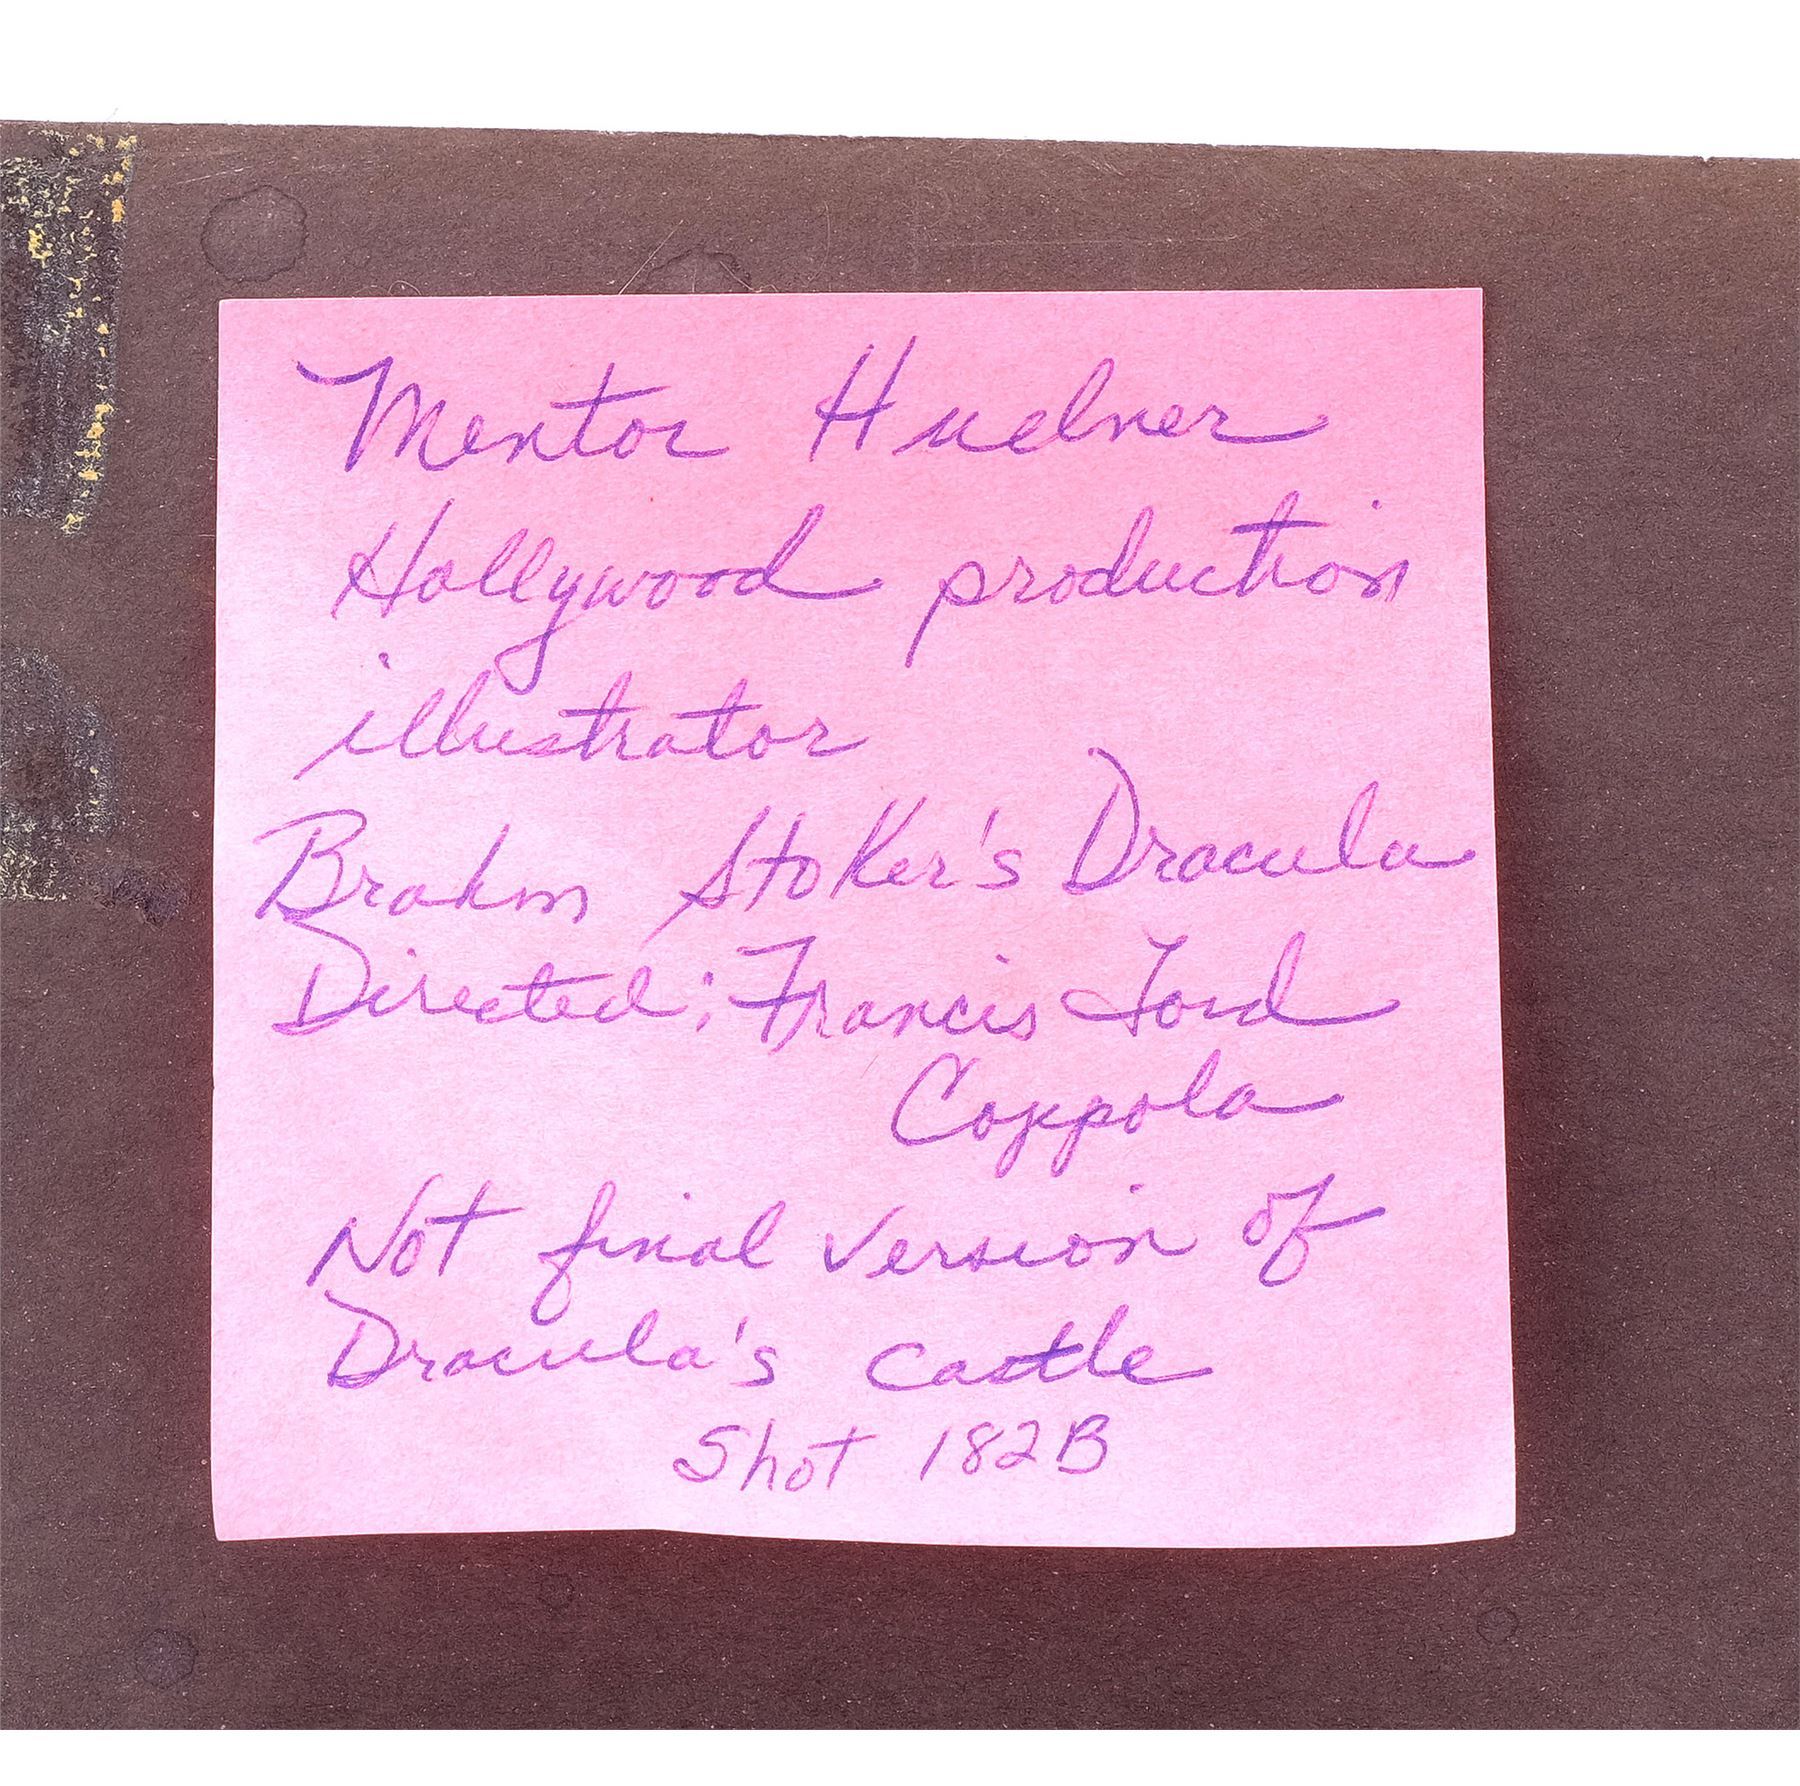 Mentor Huebner
Hollywood production
illustrator
Brahm Stoker's Dracula
Directed: Francis Ford
Coppola
Not final version of
Dracula's castle
Shot 182B